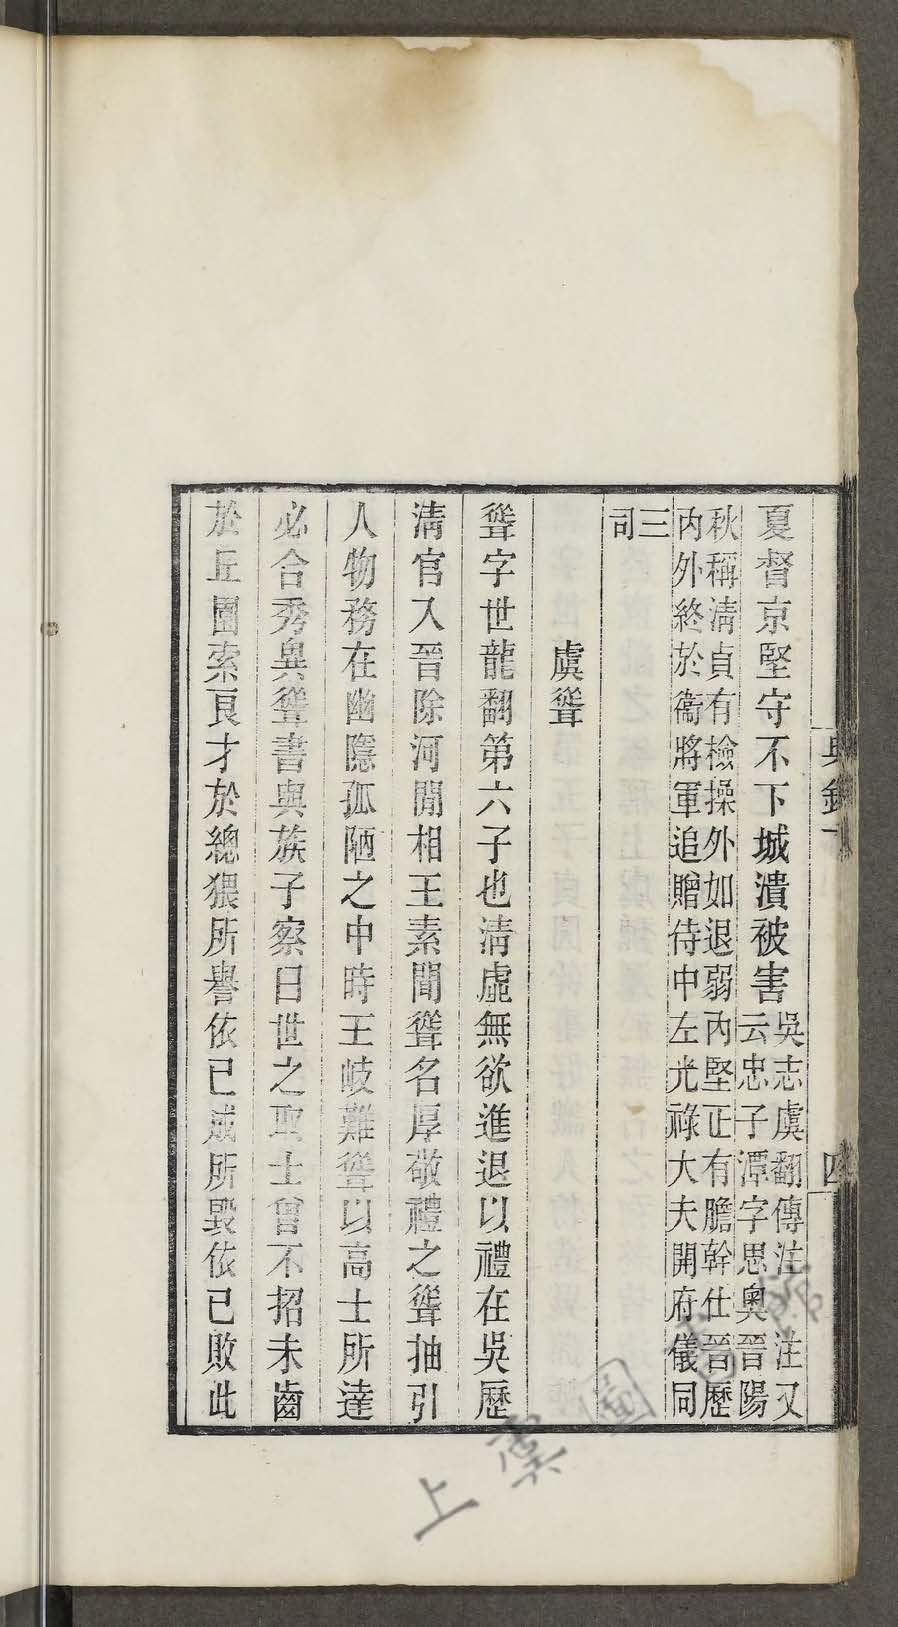 夏督京堅守不下城潰被害
吳志虞翻傳注 注又
云忠子潭字思奧晉陽
秋稱清貞有檢操外如退弱內堅正有膽幹仕晉歷
內外終於衞將軍追贈侍中左光祿大夫開府儀同
三
司
虞聳
聳字世龍翻第六子也清虛無欲進退以禮在吳歷
清官入晉除河閒相王素聞聳名厚敬禮之聳抽引
人物務在幽隱孤陋之中時王岐難聳以高士所達
必合秀異聳書與族子察曰世之取士曾不招未齒
於丘園索良才於總猥所譽依已成所毀依已敗此
典錄下
四
上虞圖書館